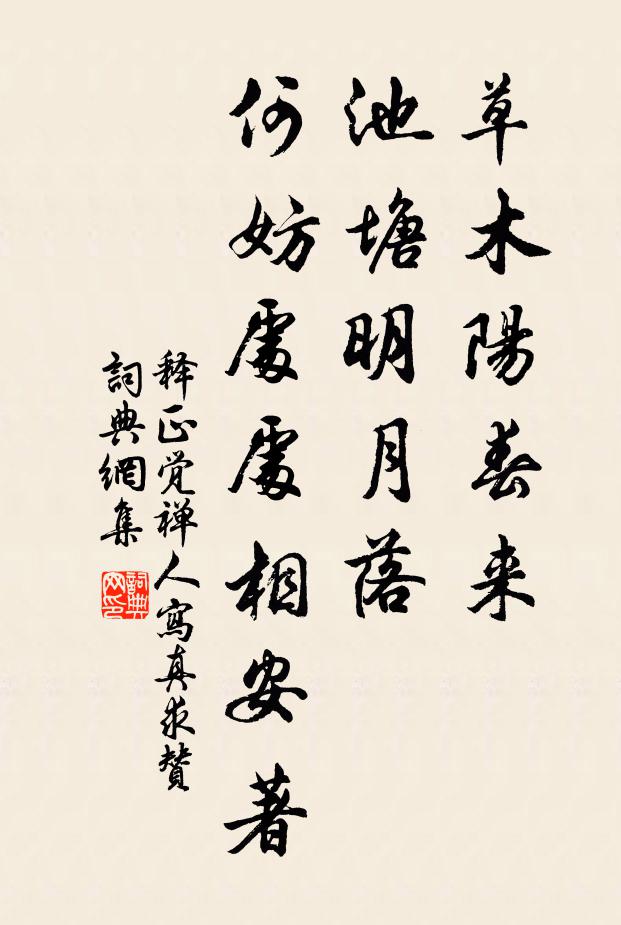 草木陽春来
池塘明月落
何妨處處相安著
释正觉禅人寫真求贊
詞典網集
詞典网印